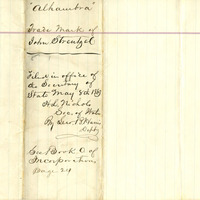 "Alhambra"
Trade Mark of
John Strentzel
Filed in office of
the Secretary of
State May 8th
Sec. of State
By Geo.
Depty
See Book C of
Incorporations
Page 24